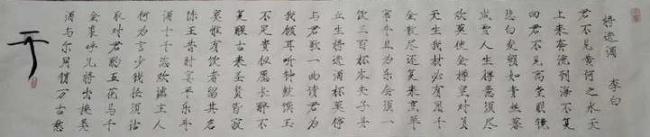 将进酒 李白
君不见黄河之水天
上来奔流到海不复
回君不见高堂明镜
悲白发朝如青丝暮
成雪人生得意须尽
欢莫使金樽空对月
天生我材必有用千
金散尽还复来烹羊
宰牛且为乐会须一
饮三百杯岑夫子丹
丘生将进酒杯莫停
与君歌一曲请君为
我倾耳听钟鼓馔玉
不足贵但愿长醉不
复醒古来圣贤皆寂
寞惟有饮者留其名
陈王昔时宴平乐斗
酒十千恣欢谑主人
何为言少钱径须沽
取对君酌五花马千
金裘呼儿将出换美
酒与尔同销万古愁